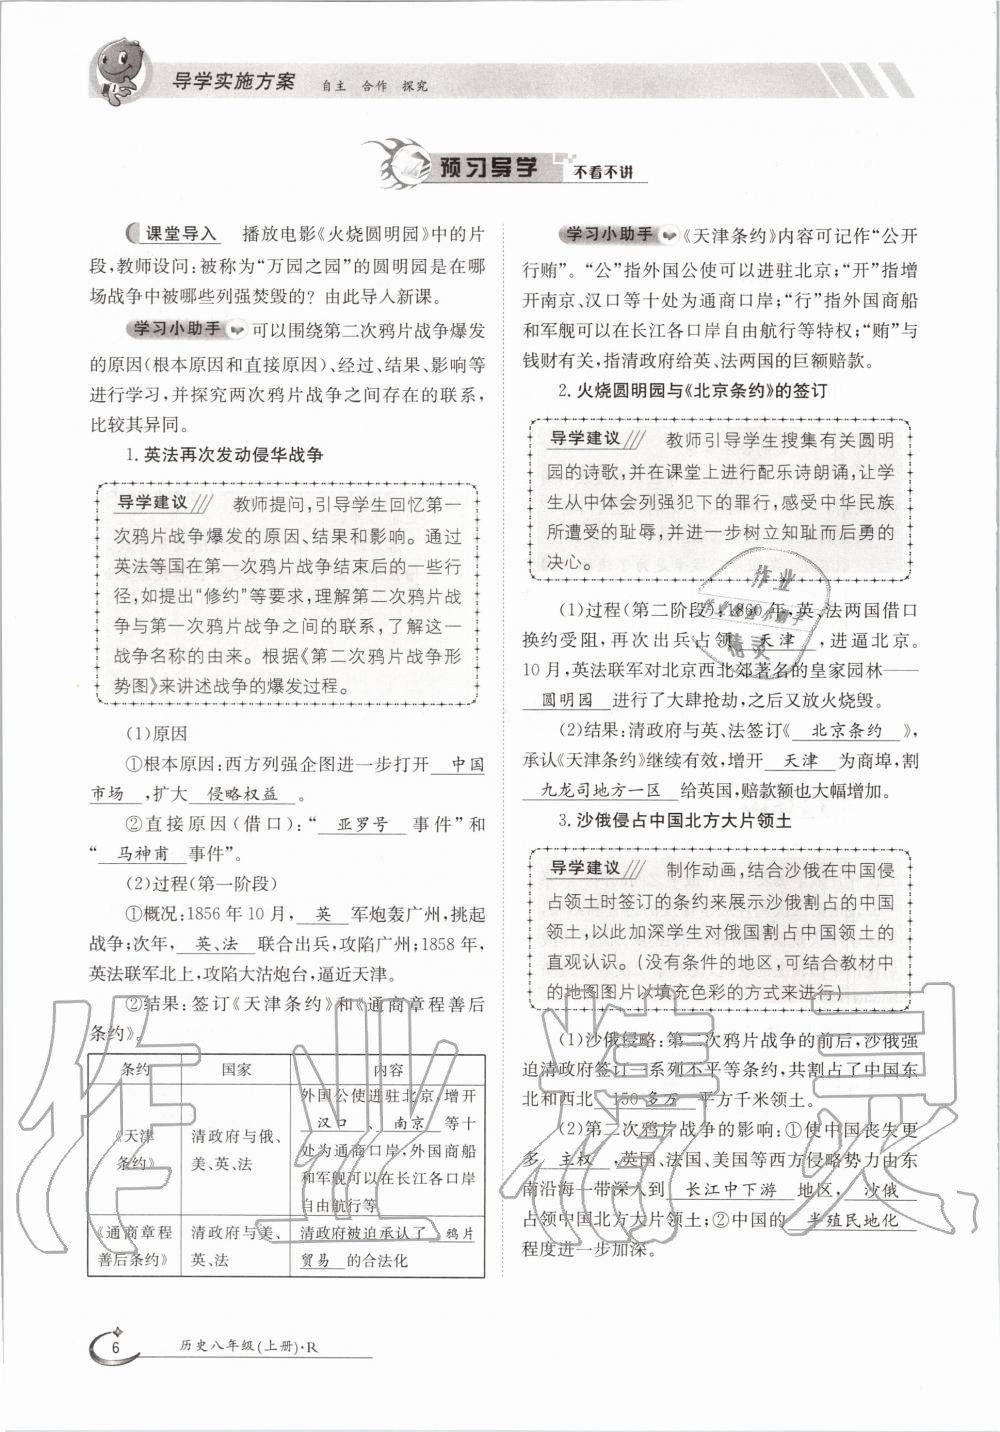 导学实施方案 自主 合作 探究
预习导学 不看不讲
课堂导入 播放电影《火烧圆明园》中的片
段,教师设问:被称为“万园之园”的圆明园是在哪
场战争中被哪些列强焚毁的？由此导入新课。
学习小助手 可以围绕第二次鸦片战争爆发
的原因(根本原因和直接原因)、经过、结果、影响等
进行学习,并探究两次鸦片战争之间存在的联系,
比较其异同。
1. 英法再次发动侵华战争
导学建议 教师提问,引导学生回忆第一
次鸦片战争爆发的原因、结果和影响。通过
英法等国在第一次鸦片战争结束后的一些行
径,如提出“修约”等要求,理解第二次鸦片战
争与第一次鸦片战争之间的联系,了解这一
战争名称的由来。根据《第二次鸦片战争形
势图》来讲述战争的爆发过程。
(1)原因
①根本原因:西方列强企图进一步打开 中国
市场 ,扩大 侵略权益 。
②直接原因(借口):“ 亚罗号 事件”和
“ 马神甫 事件”。
(2)过程(第一阶段)
①概况:1856年10月, 英 军炮轰广州,挑起
战争;次年, 英、法 联合出兵,攻陷广州;1858年,
英法联军北上,攻陷大沽炮台,逼近天津。
②结果:签订《天津条约》和《通商章程善后
条约》。
条约 国家 内容
《天津
条约》
清政府与俄、
美、英、法
外国公使进驻北京,增开
汉口 、 南京 等十
处为通商口岸,外国商船
和军舰可以在长江各口岸
自由航行等
《通商章程
善后条约》
清政府与美、
英、法
清政府被迫承认了 鸦片
贸易 的合法化
学习小助手 《天津条约》内容可记作“公开
行贿”。“公”指外国公使可以进驻北京;“开”指增
开南京、汉口等十处为通商口岸;“行”指外国商船
和军舰可以在长江各口岸自由航行等特权;“贿”与
钱财有关,指清政府给英、法两国的巨额赔款。
2. 火烧圆明园与《北京条约》的签订
导学建议 教师引导学生搜集有关圆明
园的诗歌,并在课堂上进行配乐诗朗诵,让学
生从中体会列强犯下的罪行,感受中华民族
所遭受的耻辱,并进一步树立知耻而后勇的
决心。
(1)过程(第二阶段):1860年,英、法两国借口
换约受阻,再次出兵占领 天津 ,进逼北京。
10月,英法联军对北京西北郊著名的皇家园林——
圆明园 进行了大肆抢劫,之后又放火烧毁。
(2)结果:清政府与英、法签订《 北京条约 》,
承认《天津条约》继续有效,增开 天津 为商埠,割
九龙司地方一区 给英国,赔款额也大幅增加。
3. 沙俄侵占中国北方大片领土
导学建议 制作动画,结合沙俄在中国侵
占领土时签订的条约来展示沙俄割占的中国
领土,以此加深学生对俄国割占中国领土的
直观认识。(没有条件的地区,可结合教材中
的地图图片以填充色彩的方式来进行)
(1)沙俄侵略:第二次鸦片战争的前后,沙俄强
迫清政府签订一系列不平等条约,共割占了中国东
北和西北 150多万 平方千米领土。
(2)第二次鸦片战争的影响:①使中国丧失更
多 主权 ,英国、法国、美国等西方侵略势力由东
南沿海一带深入到 长江中下游 地区, 沙俄
占领中国北方大片领土;②中国的 半殖民地化
程度进一步加深。
6 历史八年级(上册)·R
作业精灵
作业
精灵